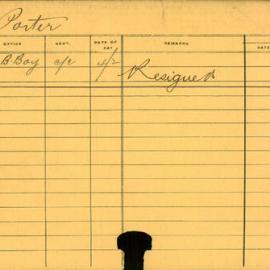 Porter
OFFICE DEPT. DATE OF PAY REMARKS DATE
B Boy o/c 4/2 Resigned